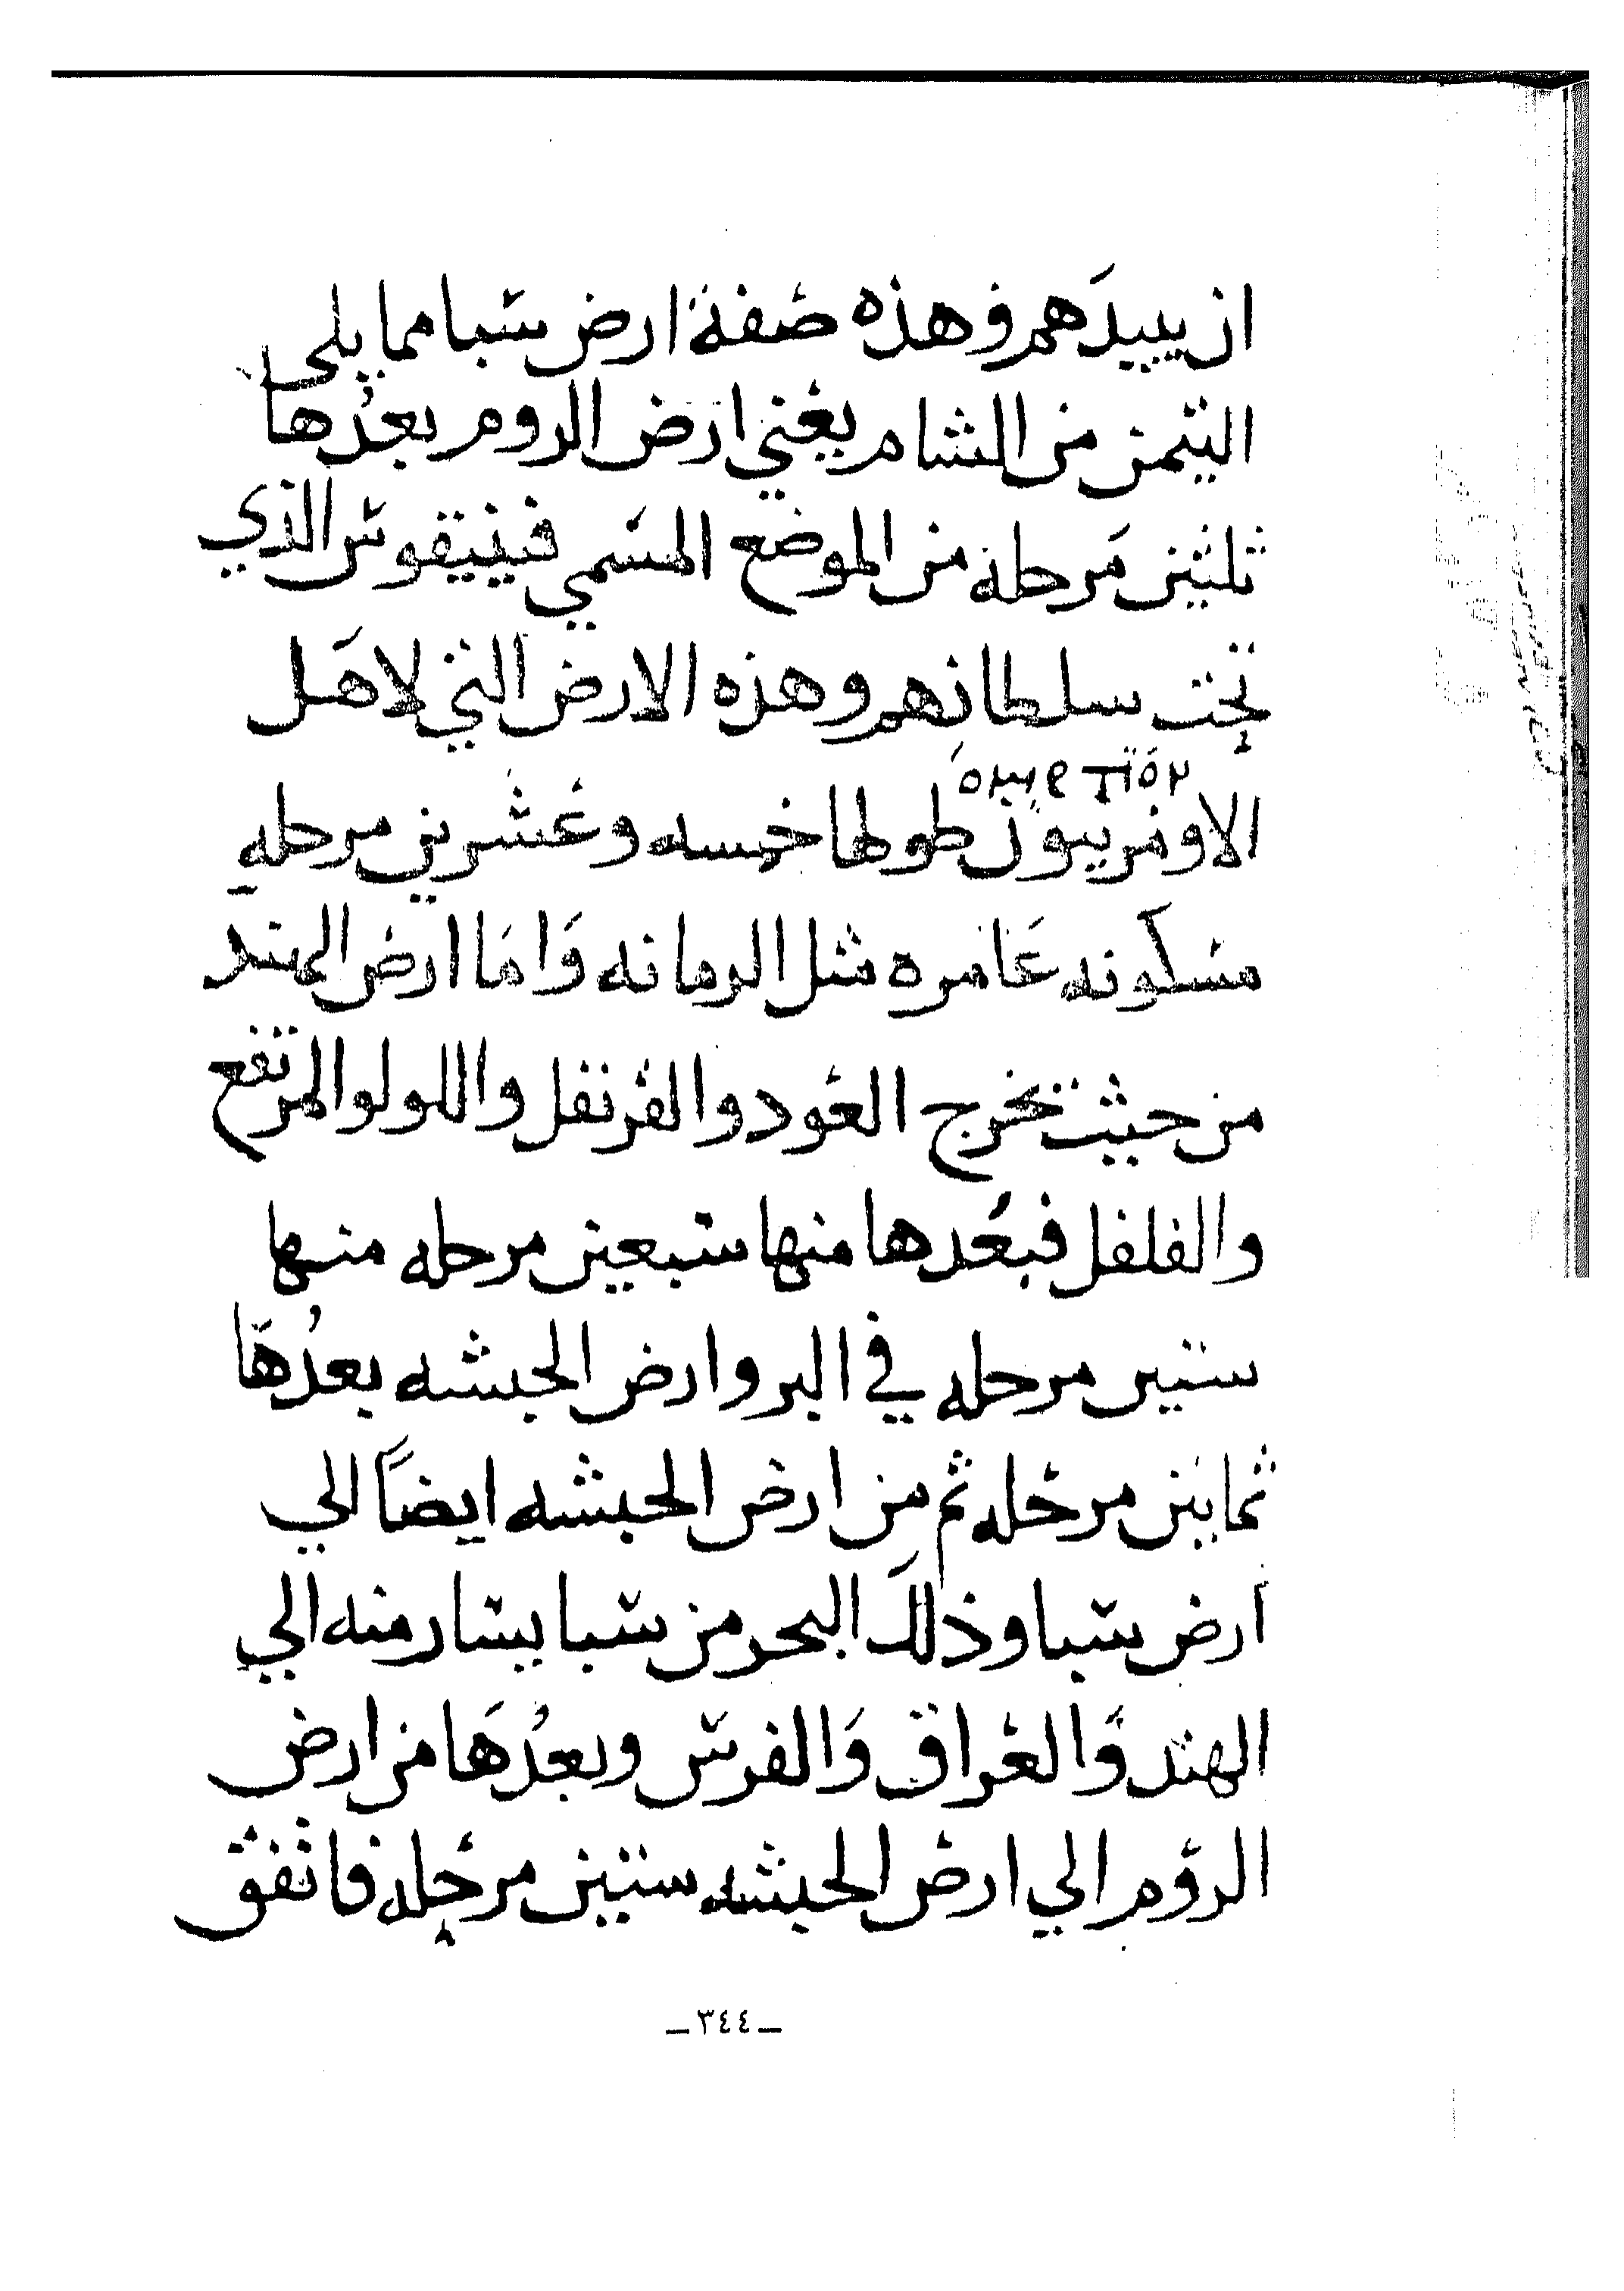 ان يبيدَهم وهذه صفة ارض سبا مما يلي
اليمن من الشام يعني ارض الروم بعدُها
ثلثين مَرحله من الموضع المسمي فينيقوس الذي
تحت سلطانهم وهذه الارض التي لاهَل
الاومريبون طولها خمسه وعشرين مرحله
مسكونه عَامره مثل الرمانه وَامَا ارض الهند
من حيث تخرج العود والقرنفل واللولو المرتفع
والفلفل فبعُدها منها سبعين مرحله منها
ستين مرحله في البر وارض الحبشه بعدُهَا
ثمانين مرحله ثم من ارض الحبشه ايضاً الي
ارض سبا وذلكَ البحر من سبا يسار منه الي
الهند وَالعراق وَالفرس وبعدُهَا من ارض
الروم الي ارض الحبشه ستين مرحله فاتفق
ـ ٣٤٤ ـ